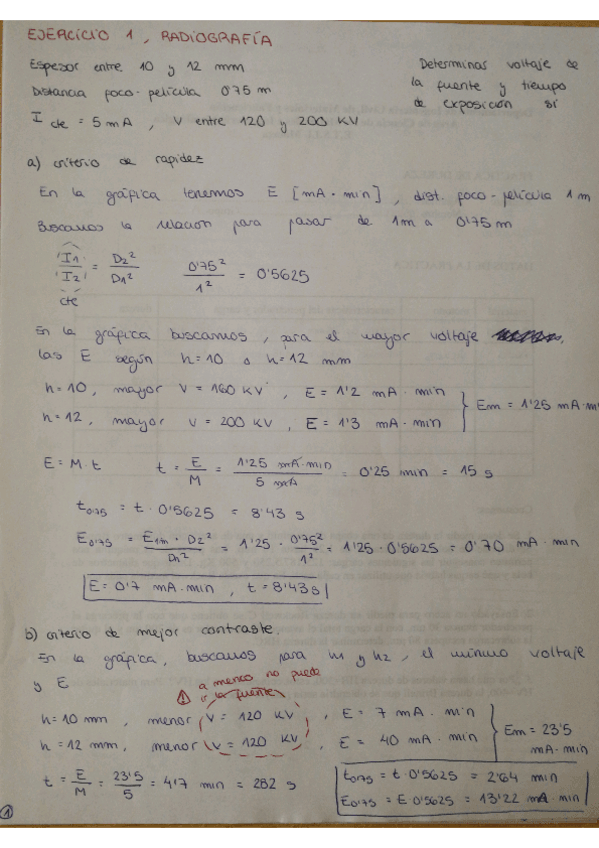 EJERCICIO 1, RADIOGRAFÍA
Espesor entre 10 y 12 mm
Distancia foco-película 0'75 m
I cte = 5 mA, V entre 120 y 200 KV
Determinar voltaje de
la fuente y tiempo
de exposición si
a) criterio de rapidez
En la gráfica tenemos E [mA·min], dist. foco-película 1 m
Buscamos la relación para pasar de 1m a 0'75 m
I1/I2 = D2²/D1²   0'75²/1² = 0'5625
cte
En la gráfica buscamos, para el mayor voltaje,
las E según h=10 o h=12 mm
h=10, mayor V = 160 KV, E = 1'2 mA·min
h=12, mayor V = 200 KV, E = 1'3 mA·min
Em = 1'25 mA·m
E = M·t   t = E/M = 1'25 mA·min/5 mA = 0'25 min = 15 s
t0'75 = t · 0'5625 = 8'43 s
E0'75 = E1m · D2²/D1² = 1'25 · 0'75²/1² = 1'25 · 0'5625 = 0'70 mA·min
E = 0'7 mA·min, t = 8'43 s
b) criterio de mejor contraste.
En la gráfica, buscamos para h1 y h2, el mínimo voltaje
y E
1 a menos no puede
ir la fuente
h=10 mm, menor V = 120 KV, E = 7 mA·min
h=12 mm, menor V = 120 KV, E = 40 mA·min
Em = 23'5
mA·min
t = E/M = 23'5/5 = 4'7 min = 282 s
t0'75 = t · 0'5625 = 2'64 min
E0'75 = E 0'5625 = 13'22 mA·min
1